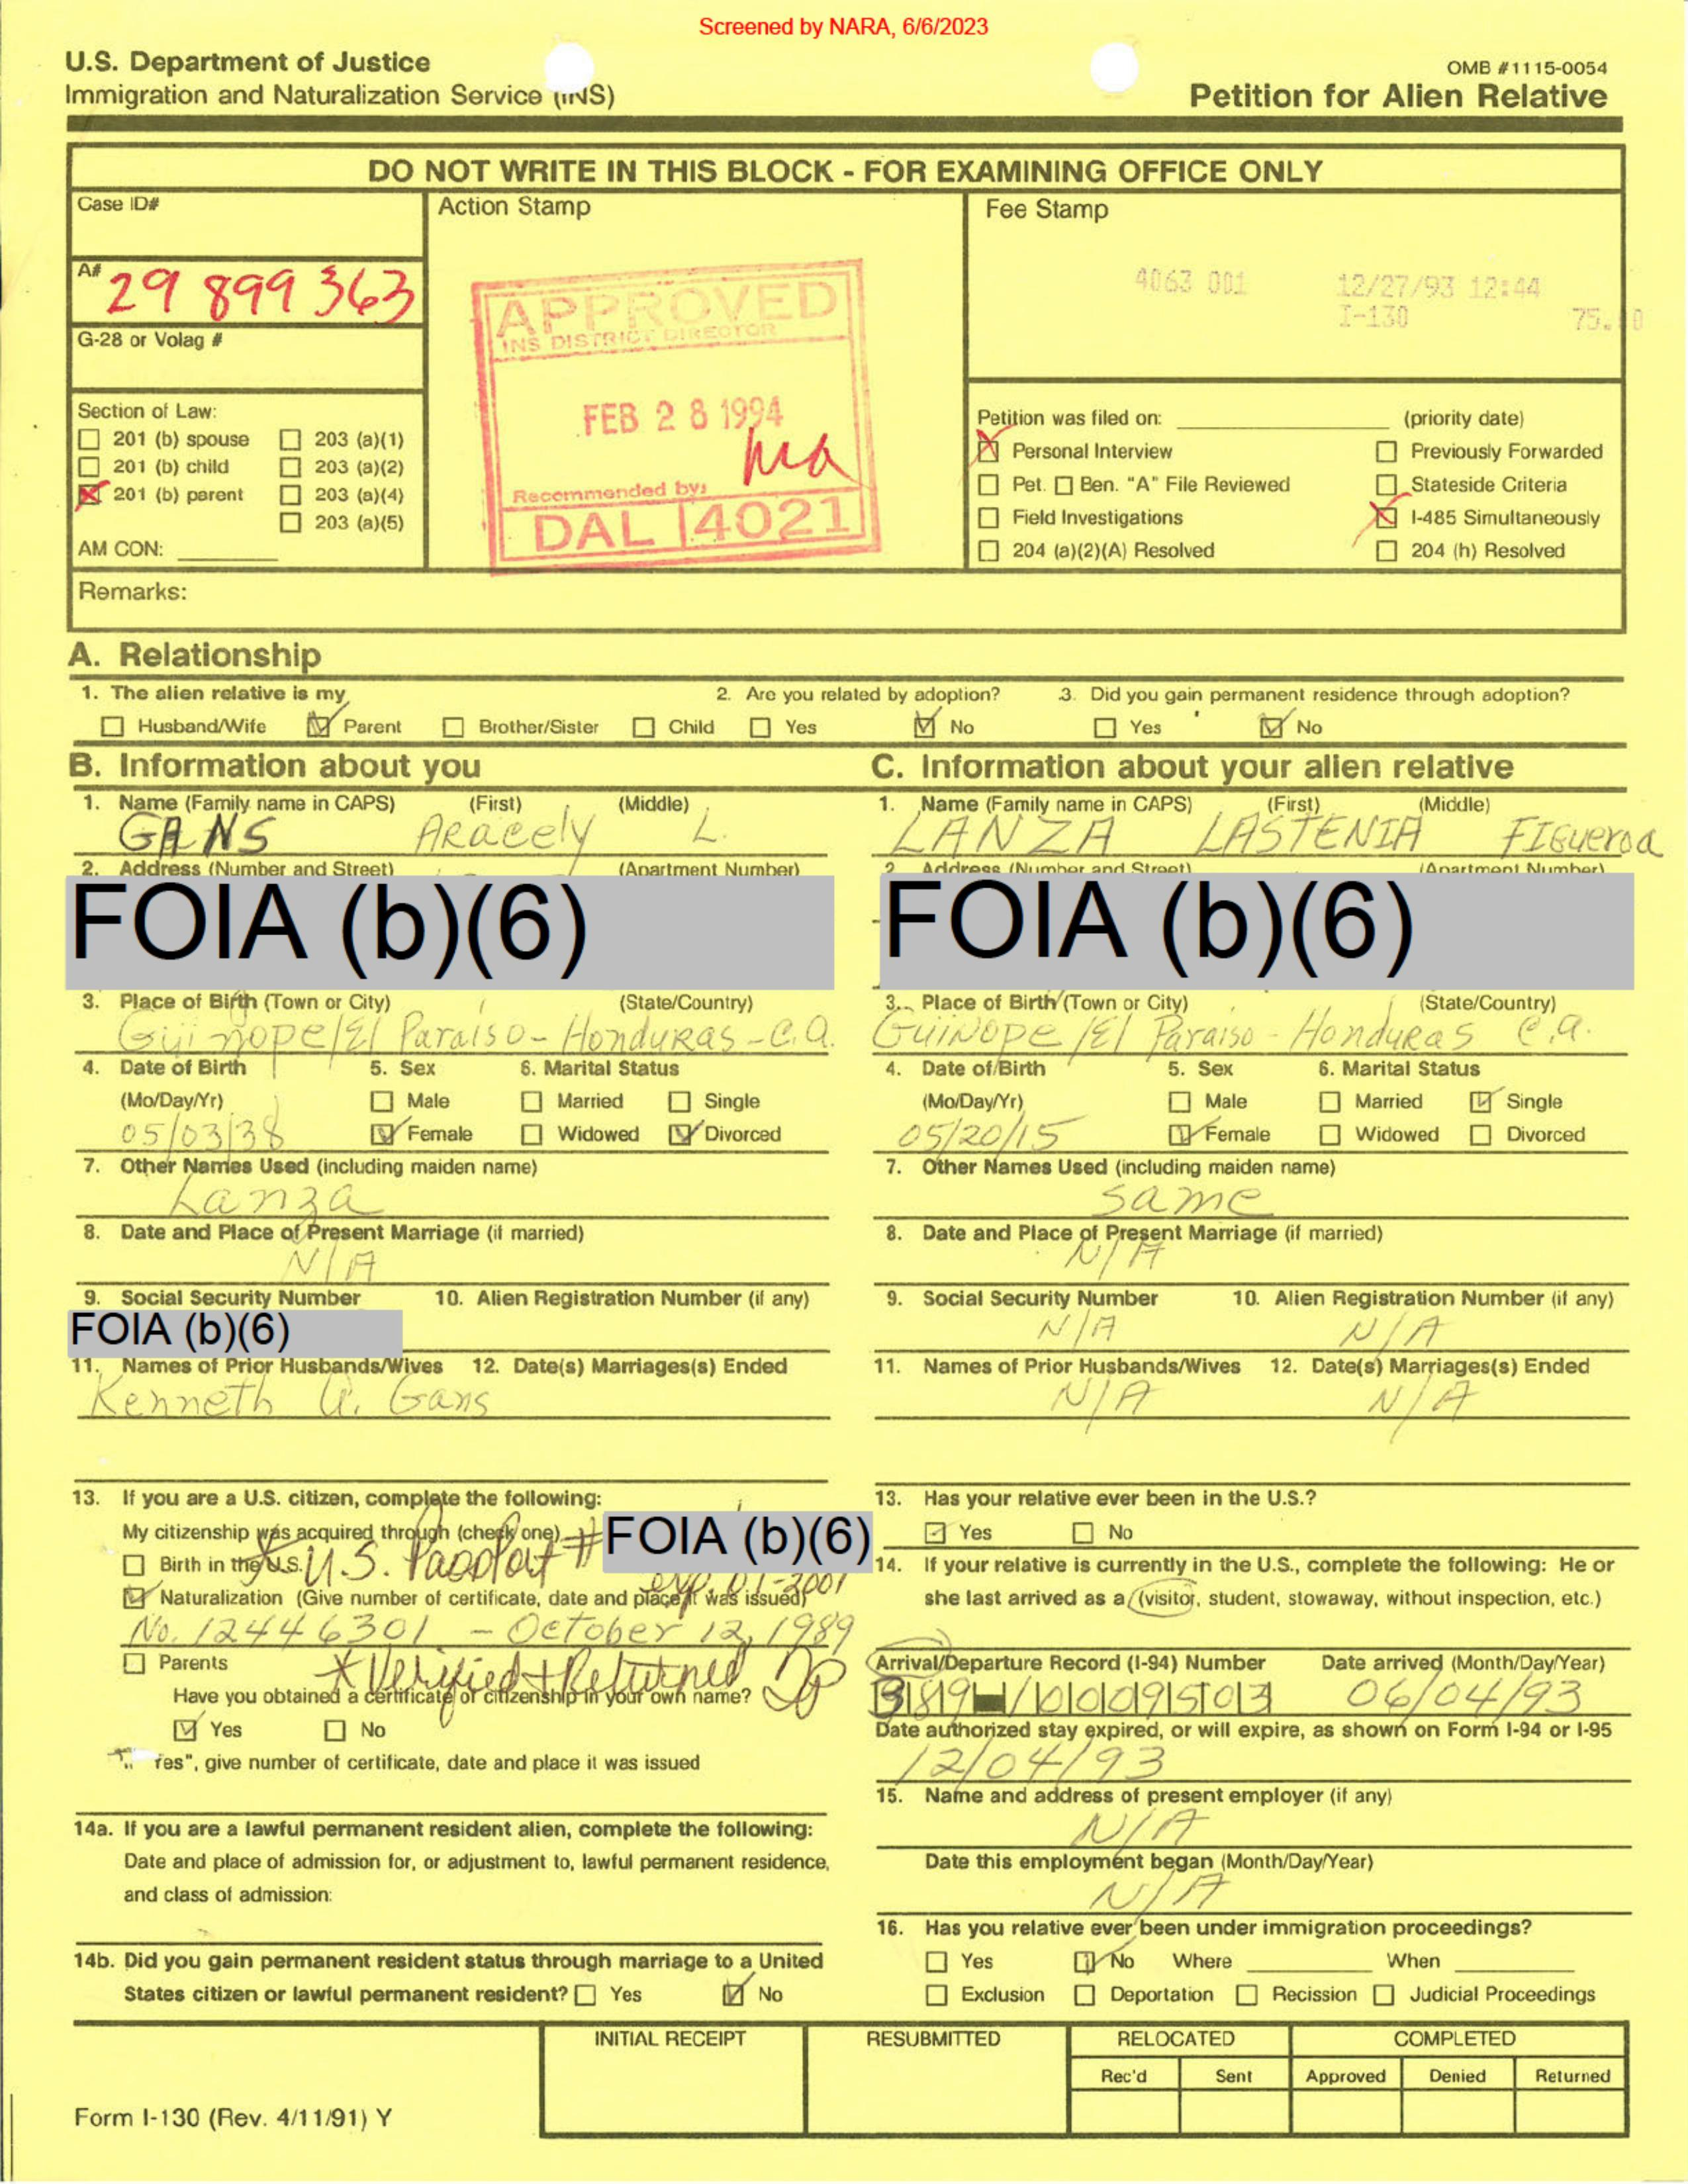 Screened by NARA, 6/6/2023
U.S. Department of Justice
Immigration and Naturalization Service (INS)
OMB #1115-0054
Petition for Alien Relative
DO NOT WRITE IN THIS BLOCK - FOR EXAMINING OFFICE ONLY
Case ID#
Action Stamp
Fee Stamp
A# 29 899 363
4063 001 12/27/93 12:44
I-130
G-28 or Volag #
APPROVED
INS DISTRICT DIRECTOR
FEB 28 1994
Recommended by:
DAL 4021
Section of Law:
201 (b) spouse 203 (a)(1)
201 (b) child 203 (a)(2)
201 (b) parent 203 (a)(4)
203 (a)(5)
AM CON:
Petition was filed on: (priority date)
Personal Interview Previously Forwarded
Pet. Ben. "A" File Reviewed Stateside Criteria
Field Investigations I-485 Simultaneously
204 (a)(2)(A) Resolved 204 (h) Resolved
Remarks:
A. Relationship
1. The alien relative is my 2. Are you related by adoption? 3. Did you gain permanent residence through adoption?
Husband/Wife Parent Brother/Sister Child Yes No Yes No
B. Information about you
1. Name (Family name in CAPS) (First) (Middle)
GANS Aracely L.
2. Address (Number and Street) (Apartment Number)
FOIA (b)(6)
3. Place of Birth (Town or City) (State/Country)
Güinope/El Paraíso - Honduras - C.A.
4. Date of Birth 5. Sex 6. Marital Status
(Mo/Day/Yr) Male Married Single
05/03/38 Female Widowed Divorced
7. Other Names Used (including maiden name)
Lanza
8. Date and Place of Present Marriage (if married)
N/A
9. Social Security Number 10. Alien Registration Number (if any)
FOIA (b)(6)
11. Names of Prior Husbands/Wives 12. Date(s) Marriages(s) Ended
Kenneth Gans
13. If you are a U.S. citizen, complete the following:
My citizenship was acquired through (check one)
Birth in the U.S.
* U.S. Passport # FOIA (b)(6)
exp. 01-2001
Naturalization (Give number of certificate, date and place it was issued)
No. 12446301 - October 12, 1989
Parents
* Verified + Returned
Have you obtained a certificate of citizenship in your own name?
Yes No
Yes", give number of certificate, date and place it was issued
14a. If you are a lawful permanent resident alien, complete the following:
Date and place of admission for, or adjustment to, lawful permanent residence,
and class of admission:
14b. Did you gain permanent resident status through marriage to a United
States citizen or lawful permanent resident? Yes No
C. Information about your alien relative
1. Name (Family name in CAPS) (First) (Middle)
LANZA LASTENIA FIGueroa
2. Address (Number and Street) (Apartment Number)
FOIA (b)(6)
3. Place of Birth (Town or City) (State/Country)
Güinope/El Paraiso - Honduras C.A.
4. Date of Birth 5. Sex 6. Marital Status
(Mo/Day/Yr) Male Married Single
05/20/15 Female Widowed Divorced
7. Other Names Used (including maiden name)
same
8. Date and Place of Present Marriage (if married)
N/A
9. Social Security Number 10. Alien Registration Number (if any)
N/A N/A
11. Names of Prior Husbands/Wives 12. Date(s) Marriages(s) Ended
N/A N/A
13. Has your relative ever been in the U.S.?
Yes No
14. If your relative is currently in the U.S., complete the following: He or
she last arrived as a (visitor, student, stowaway, without inspection, etc.)
Arrival/Departure Record (I-94) Number Date arrived (Month/Day/Year)
06/04/93
Date authorized stay expired, or will expire, as shown on Form I-94 or I-95
12/04/93
15. Name and address of present employer (if any)
N/A
Date this employment began (Month/Day/Year)
N/A
16. Has you relative ever been under immigration proceedings?
Yes No Where When
Exclusion Deportation Recission Judicial Proceedings
INITIAL RECEIPT RESUBMITTED RELOCATED COMPLETED
Rec'd Sent Approved Denied Returned
Form I-130 (Rev. 4/11/91) Y